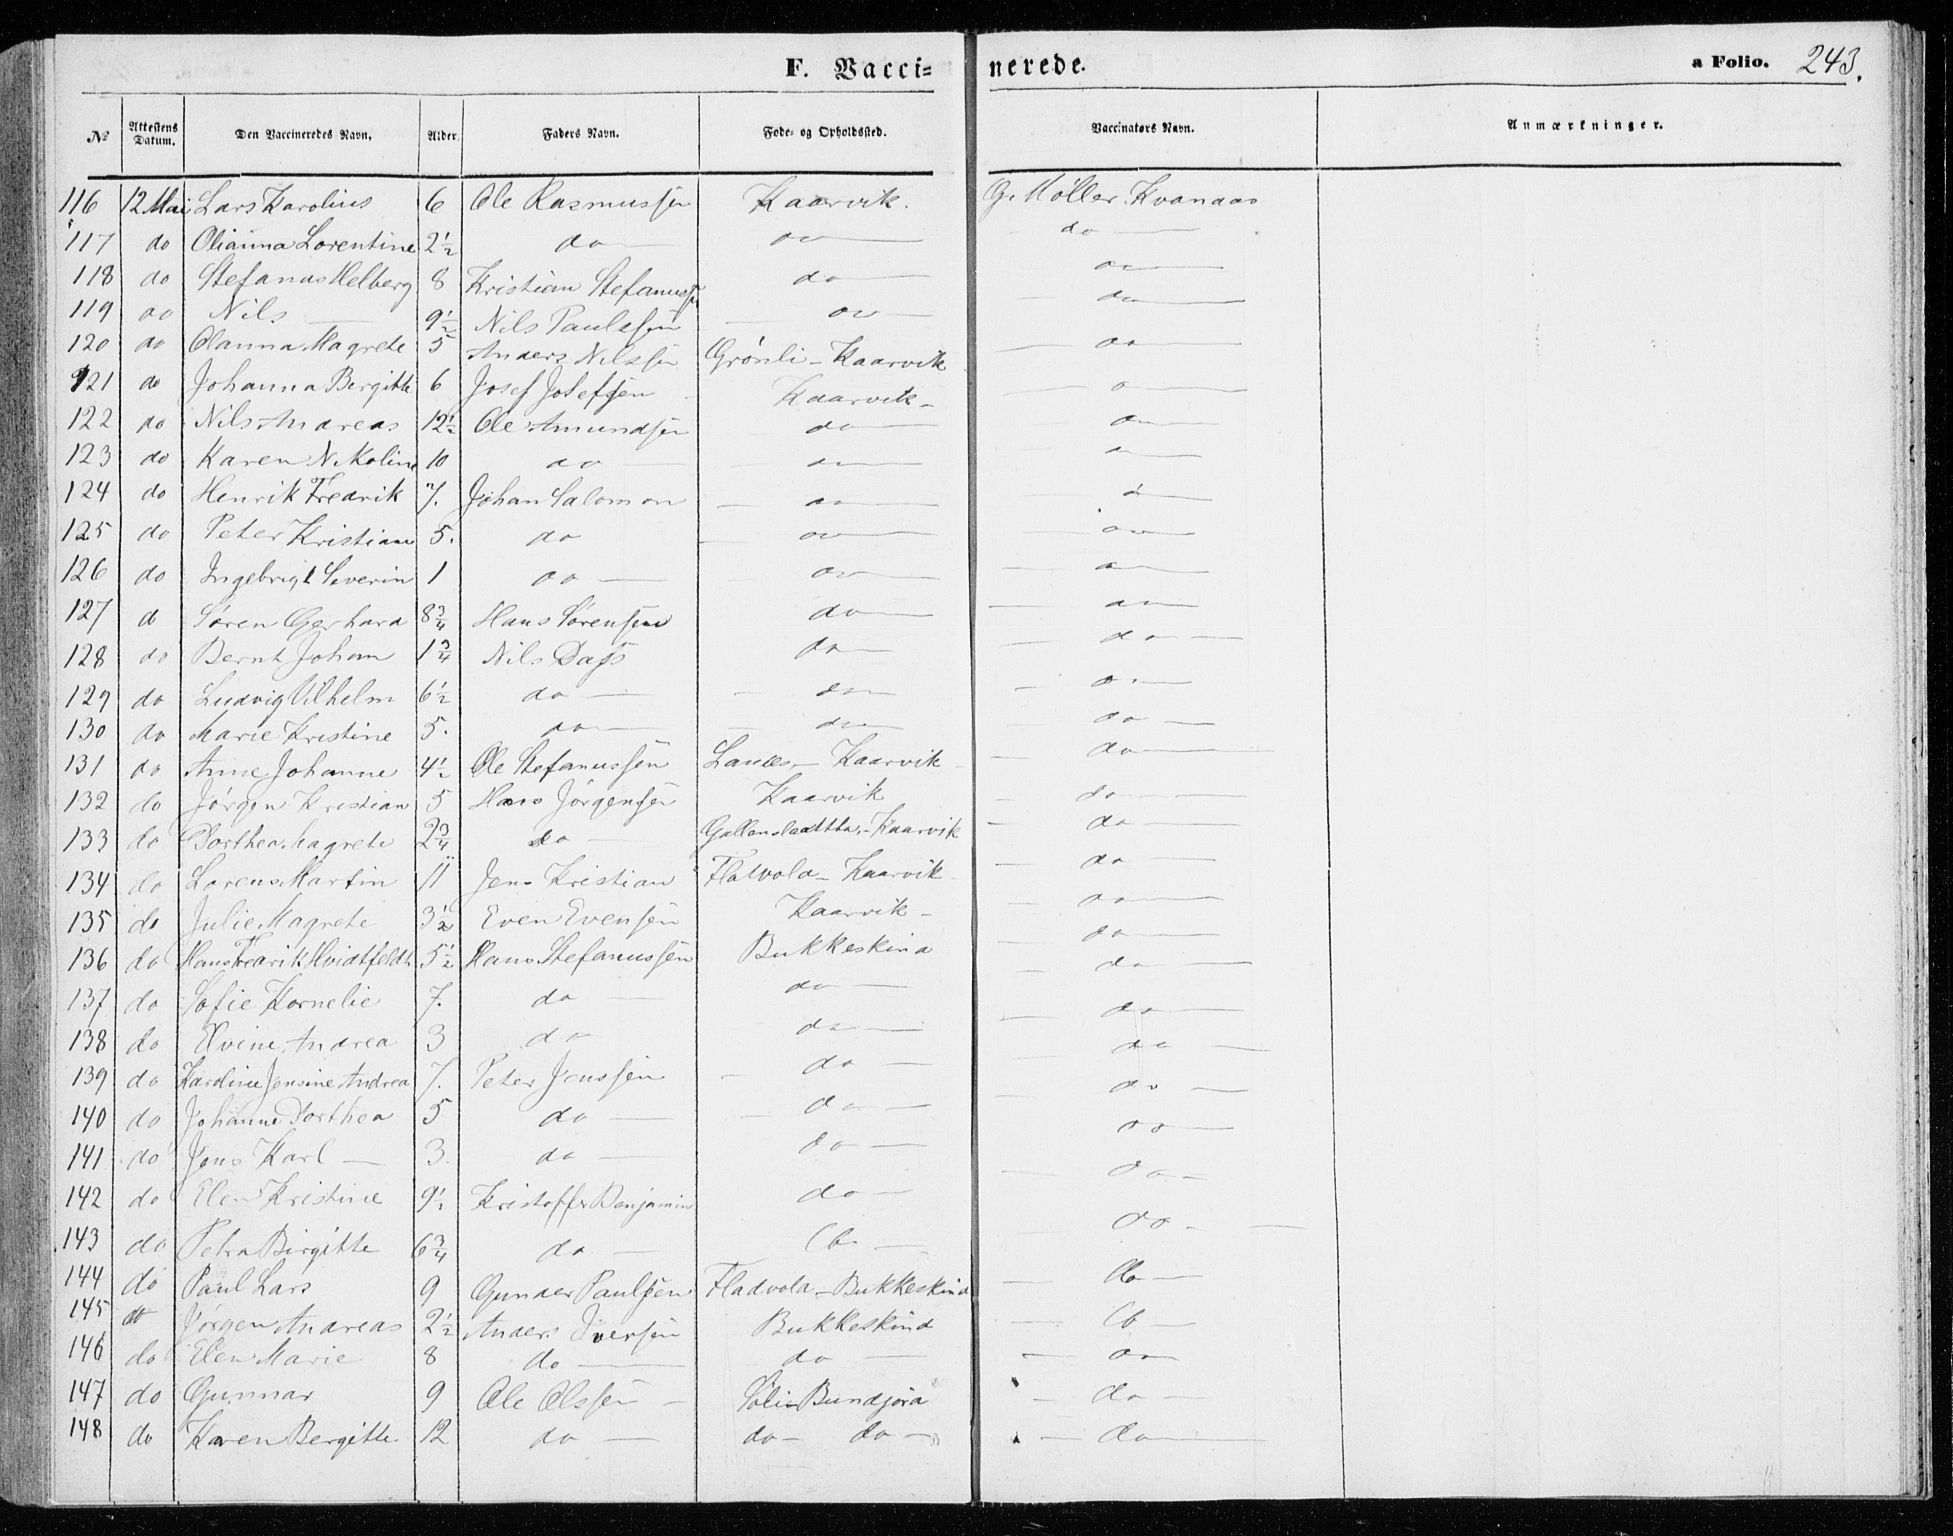 F. Vacci= nerede. a Folio. 243.
No Attestens Datum. Den Vaccineredes Navn. Alder. Faders Navn. Føde- og Opholdssted. Vaccinatørs Navn. Anmærkninger.
116 12 Mai Lars Karolius 6 Ole Rasmussen Kaarvik. Møller Kvanaas
117 do Olianna Lorentine 2½ do do do
118 do Stefanus Helberg 8 Kristian Stefanussen do do
119 do Nils 9½ Nils Paulssen do do
120 do Olanna Magrete 5 Anders Nilssen Grønli - Kaarvik do
121 do Johanna Bergitte 6 Josef Josefsen Kaarvik - do
122 do Nils Andreas 12½ Ole Amundsen do do
123 do Karen Nikoline 10 do do do
124 do Henrik Fredrik 7. Johan Salomon do do
125 do Peter Kristian 5. do do do
126 do Ingebrigt Severin 1 do do do
127 do Søren Gerhard 8¾ Hans Sørensen do do
128 do Bernt Johan 1¾ Nils Dass do do
129 do Ludvig Vilhelm 6½ do do do
130 do Marie Kristine 5. do do do
131 do Anne Johanne 4½ Ole Stefanussen Lanes - Kaarvik do
132 do Jørgen Kristian 5 Hans Jørgensen Kaarvik do
133 do Dorthea Magrete 2¾ do - Kaarvik do
134 do Lorens Martin 11 Jens Kristian Flatvola - Kaarvik do
135 do Julie Magrete 3½ Even Evensen Kaarvik - do
136 do Hans Fredrik Hvidtfeldt 5½ Hans Stefanussen Bukkeskind do
137 do Sofie Kornelie 7. do do do
138 do Elvine Andrea 3 do do do
139 do Karoline Jensine Andrea 7. Peter Jenssen do do
140 do Johanne Dorthea 5 do do do
141 do Jens Karl 3. do do do
142 do Elen Kristine 9½ Kristoffer Benjamin do do
143 do Petra Birgitte 6¾ do do do
144 do Paul Lars 9 Gunder Paulsen Fladvola - Bukkeskind do
145 do Jørgen Andreas 2½ Anders Iversen Bukkeskind do
146 do Elen Marie 8 do do do
147 do Gunnar 9 Ole Olssen Soli - Bundjora do
148 do Karen Bergitte 12 do do - do do